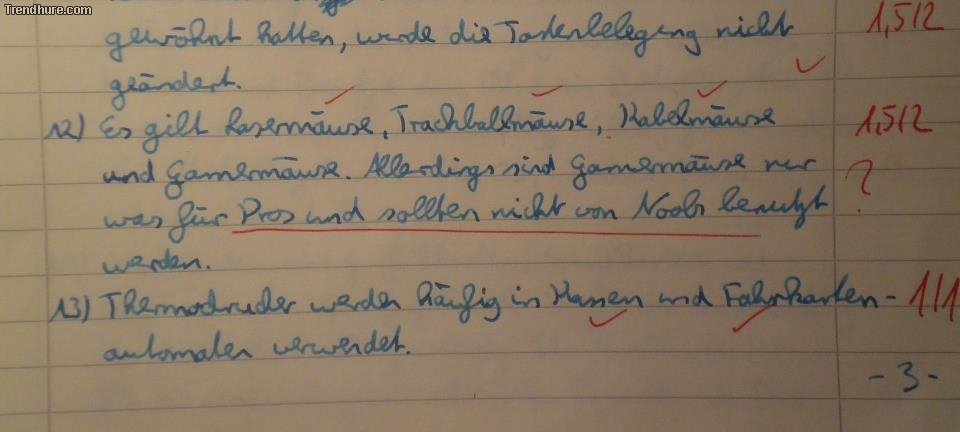 Trendhure.com
gewöhnt hatten, wurde die Tastenbelegung nicht 1,5/2
geändert.
12) Es gibt Lasermäuse, Trackballmäuse, Kabelmäuse 1,5/2
und Gamermäuse. Allerdings sind Gamermäuse nur ?
was für Pros und sollten nicht von Noobs benutzt
werden.
13) Thermodrucker werden häufig in Kassen und Fahrkarten- 1/1
automaten verwendet.
- 3 -